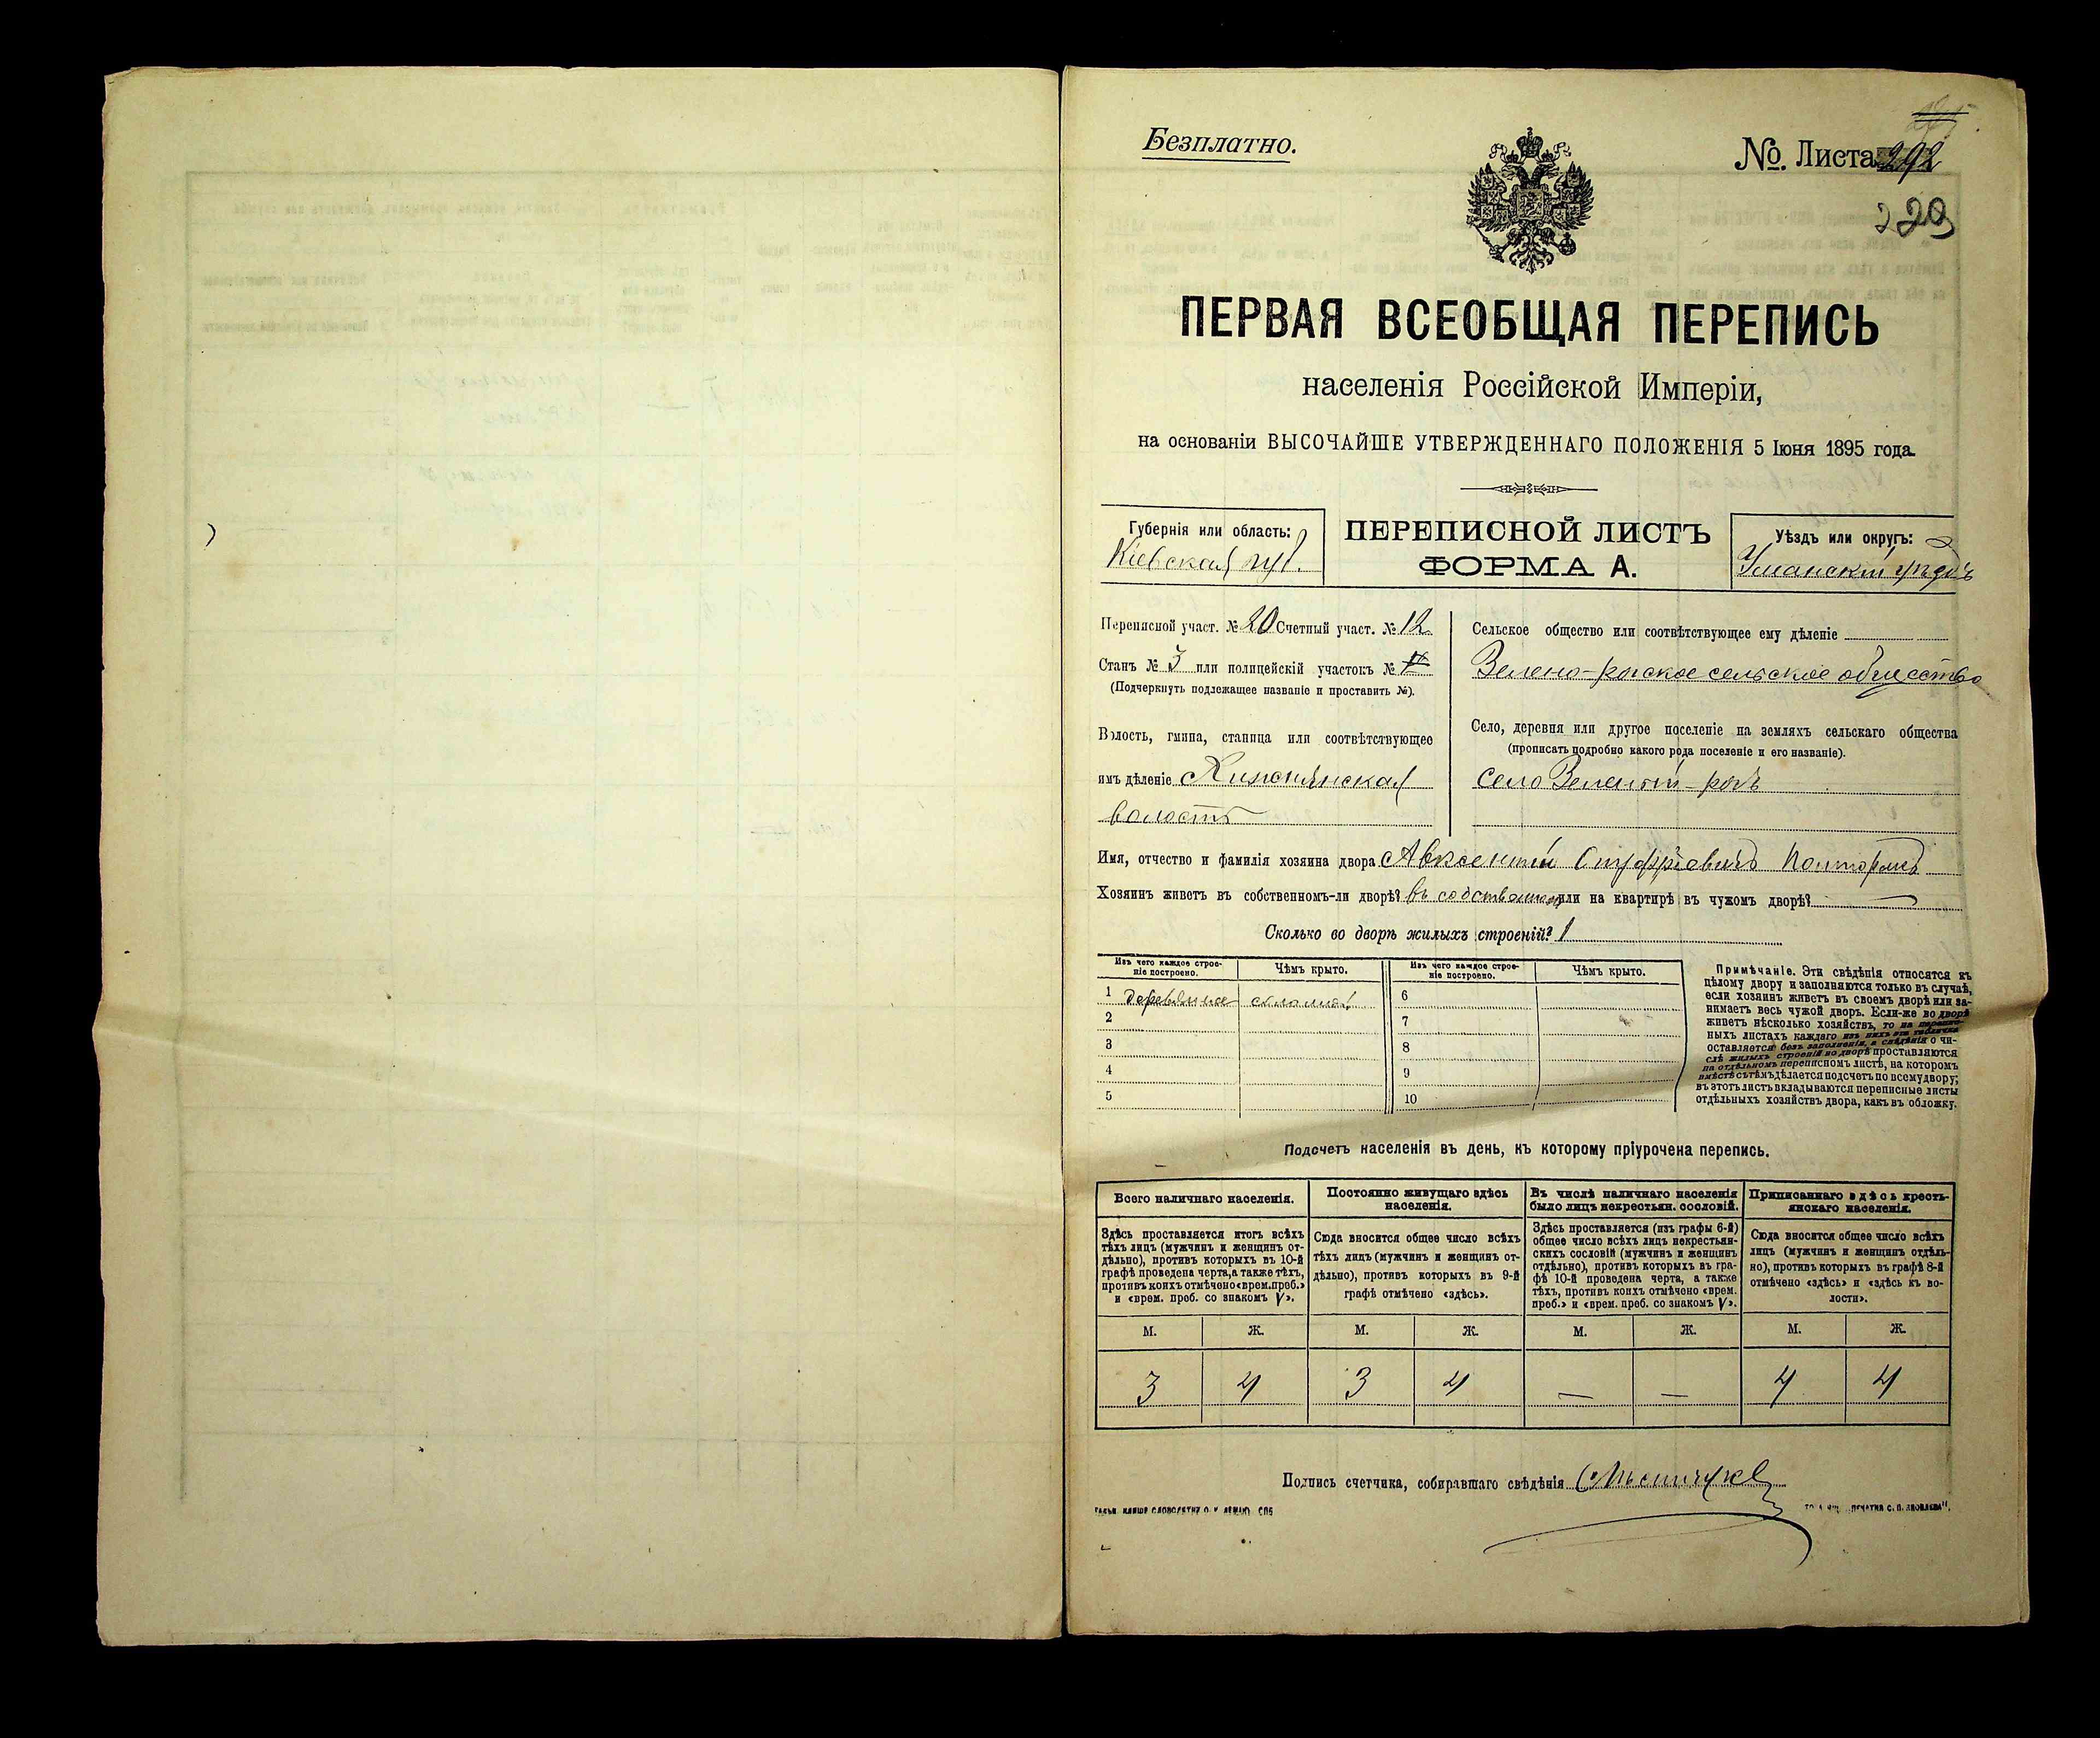 Безплатно.
№ Листа 292
220
ПЕРВАЯ ВСЕОБЩАЯ ПЕРЕПИСЬ
населенія Россійской Имперіи,
на основаніи ВЫСОЧАЙШЕ УТВЕРЖДЕННАГО ПОЛОЖЕНІЯ 5 Іюня 1895 года.
Губернія или область:
Кіевская губ.
ПЕРЕПИСНОЙ ЛИСТЪ
ФОРМА А.
Уѣздъ или округъ:
Уманскій уѣздъ
Переписной участ. № 20 Счетный участ. № 12
Станъ № 3 или полицейскій участокъ №
(Подчеркнуть подлежащее названіе и проставить №).
Волость, гмина, станица или соотвѣтствующее
имъ дѣленіе Хижнянская
волость
Сельское общество или соотвѣтствующее ему дѣленіе
Зелено-рогское сельское общество
Село, деревня или другое поселеніе на земляхъ сельскаго общества
(прописать подробно какого рода поселеніе и его названіе).
Село Зеленый-рогъ
Имя, отчество и фамилія хозяина двора Авксентій Онуфріевичъ
Хозяинъ живетъ въ собственномъ-ли дворѣ? въ собственномъ или на квартирѣ въ чужомъ дворѣ? —
Сколько во дворѣ жилыхъ строеній? 1
Изъ чего каждое строе-
ніе построено.
Чѣмъ крыто.
Изъ чего каждое строе-
ніе построено.
Чѣмъ крыто.
1 деревянное соломой
2
3
4
5
6
7
8
9
10
Примѣчаніе. Эти свѣдѣнія относятся къ
цѣлому двору и заполняются только въ случаѣ,
если хозяинъ живетъ въ своемъ дворѣ или за-
нимаетъ весь чужой дворъ. Если-же во дворѣ
живетъ нѣсколько хозяйствъ, то на перепис-
ныхъ листахъ каждаго изъ нихъ эта табличка
оставляется безъ заполненія, а свѣдѣнія о чи-
слѣ жилыхъ строеній во дворѣ проставляются
на отдѣльномъ переписномъ листѣ, на которомъ
вмѣстѣ съ тѣмъ дѣлается подсчетъ по всему двору;
въ этотъ листъ вкладываются переписные листы
отдѣльныхъ хозяйствъ двора, какъ въ обложку.
Подсчетъ населенія въ день, къ которому пріурочена перепись.
Всего наличнаго населенія.
Здѣсь проставляется итогъ всѣхъ
тѣхъ лицъ (мужчинъ и женщинъ от-
дѣльно), противъ которыхъ въ 10-й
графѣ проведена черта, а также тѣхъ,
противъ коихъ отмѣчено «врем. преб.»
и «врем. преб. со знакомъ V».
Постоянно живущаго здѣсь
населенія.
Сюда вносится общее число всѣхъ
тѣхъ лицъ (мужчинъ и женщинъ от-
дѣльно), противъ которыхъ въ 9-й
графѣ отмѣчено «здѣсь».
Въ числѣ наличнаго населенія
было лицъ некрестьян. сословій.
Здѣсь проставляется (изъ графы 6-й)
общее число всѣхъ лицъ некрестьян-
скихъ сословій (мужчинъ и женщинъ
отдѣльно), противъ которыхъ въ гра-
фѣ 10-й проведена черта, а также
тѣхъ, противъ коихъ отмѣчено «врем.
преб.» и «врем. преб. со знакомъ V».
Приписаннаго здѣсь кресть-
янскаго населенія.
Сюда вносится общее число всѣхъ
лицъ (мужчинъ и женщинъ отдѣль-
но), противъ которыхъ въ графѣ 8-й
отмѣчено «здѣсь» и «здѣсь къ во-
лости».
М. Ж. М. Ж. М. Ж. М. Ж.
3 4 3 4 — — 4 4
Подпись счетчика, собиравшаго свѣдѣнія